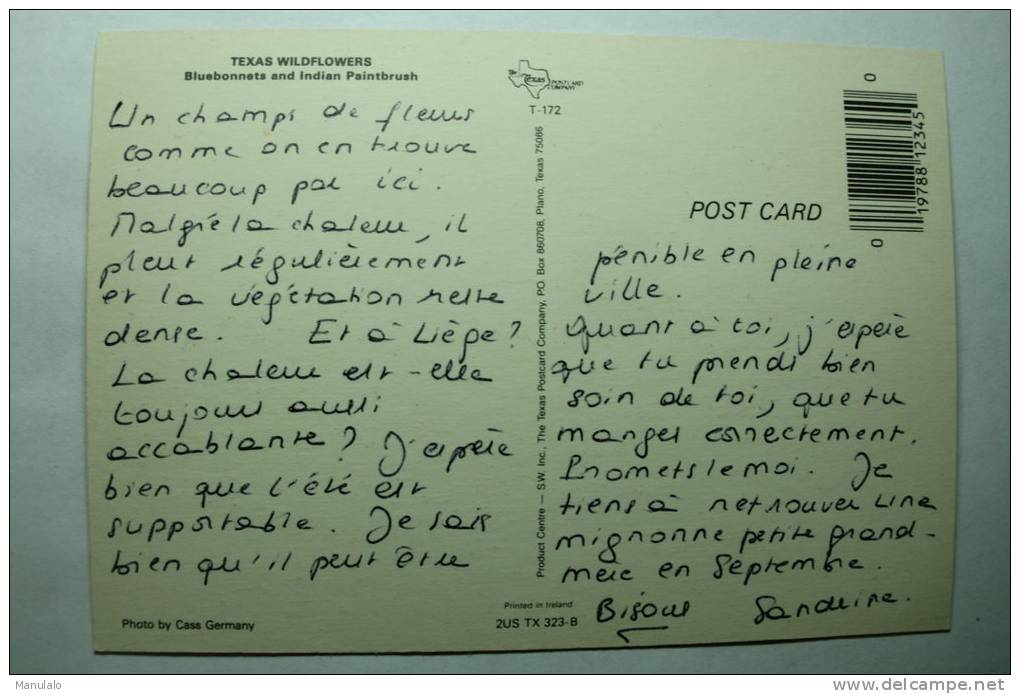 TEXAS WILDFLOWERS
Bluebonnets and Indian Paintbrush
Un champs de fleurs
comme on en trouve
beaucoup par ici.
Malgré la chaleur, il
pleut régulièrement
et la végétation reste
dense. Et à Liège?
La chaleur est-elle
toujours aussi
accablante? J'espère
bien que l'été est
supportable. Je sais
bien qu'il peut être
Photo by Cass Germany
The Texas POSTCARD COMPANY
T-172
Product Centre — S.W. Inc., The Texas Postcard Company, P.O. Box 860708, Plano, Texas 75086
Printed in Ireland
2US TX 323-B
0 19788 12345 0
POST CARD
pénible en pleine
ville.
Quant à toi, j'espère
que tu prends bien
soin de toi, que tu
manges correctement.
Promets le moi. Je
tiens à retrouver une
mignonne petite grand-
mère en Septembre.
Bisous Sandrine.
Manulalo
www.delcampe.net